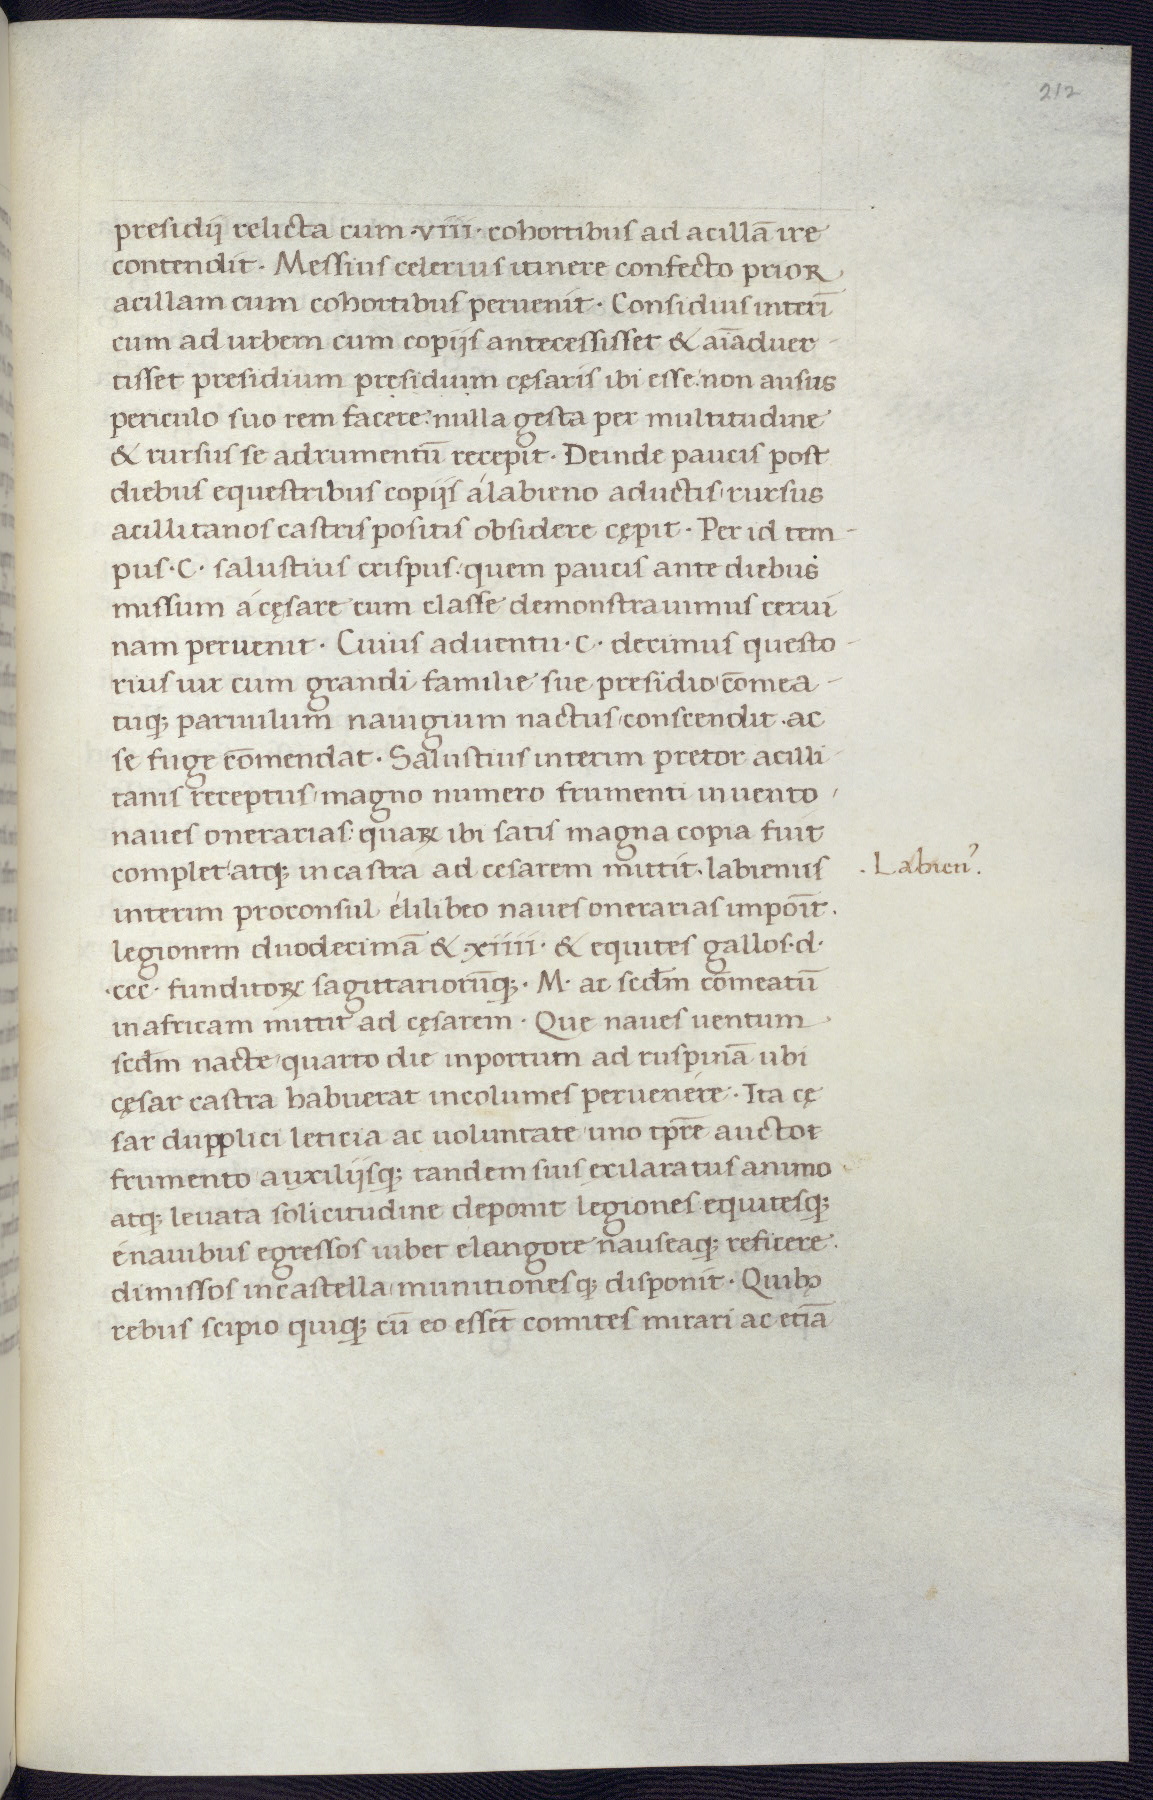 212
presidij relicta cum ·viii· cohortibus ad acillā ire
contendit · Messius celerius itinere confecto prior
acillam cum cohortibus peruenit · Considius interī
cum ad urbem cum copijs antecessisset & aīaduer-
tisset presidium pręsidium cęsaris ibi esse: non ausus
periculo suo rem facere: nulla gesta per multitudine
& rursus se adrumentū recepit · Deinde paucis post
diebus equestribus copijs á labieno aductis rursus
acillitanos castris positis obsidere cępit · Per id tem-
pus · C · salustius crispus: quem paucis ante diebus
missum á cęsare cum classe demonstrauimus cerui
nam peruenit · Cuius aduentu · C · decimus questo-
rius uir cum grandi familie sue presidio cōmea-
tuq; paruulum nauigium nactus conscendit · ac
se fuge cōmendat · Salustius interim pretor acilli-
tanis receptus magno numero frumenti inuento
naues onerarias: quaꝝ ibi satis magna copia fuit
complet atq; in castra ad cesarem mittit · labienus
· Labien⁹ ·
interim proconsul élilibeo naues onerarias imponīt ·
legionem duodecimā & · xiiii · & equites gallos · d ·
· ccc · funditoꝝ sagittariorūq; · M · ac scdm cōmeatū
in africam mittit ad cęsarem · Que naues uentum
scdm nacte quarto die in portum ad ruspinā ubi
cęsar castra habuerat incolumes peruenere · Ita cę
sar dupplici leticia ac uoluntate uno tp̄re auctot
frumento auxilijsq; tandem suis exilaratus animo
atq; leuata solicitudine deponit legiones equitesq;
é nauibus egressos iubet elangore nauseaq; reficere ·
dimissos in castella munitionesq; disponit · Quibꝫ
rebus scipio quiq; cū eo essēt comites mirari ac etiā